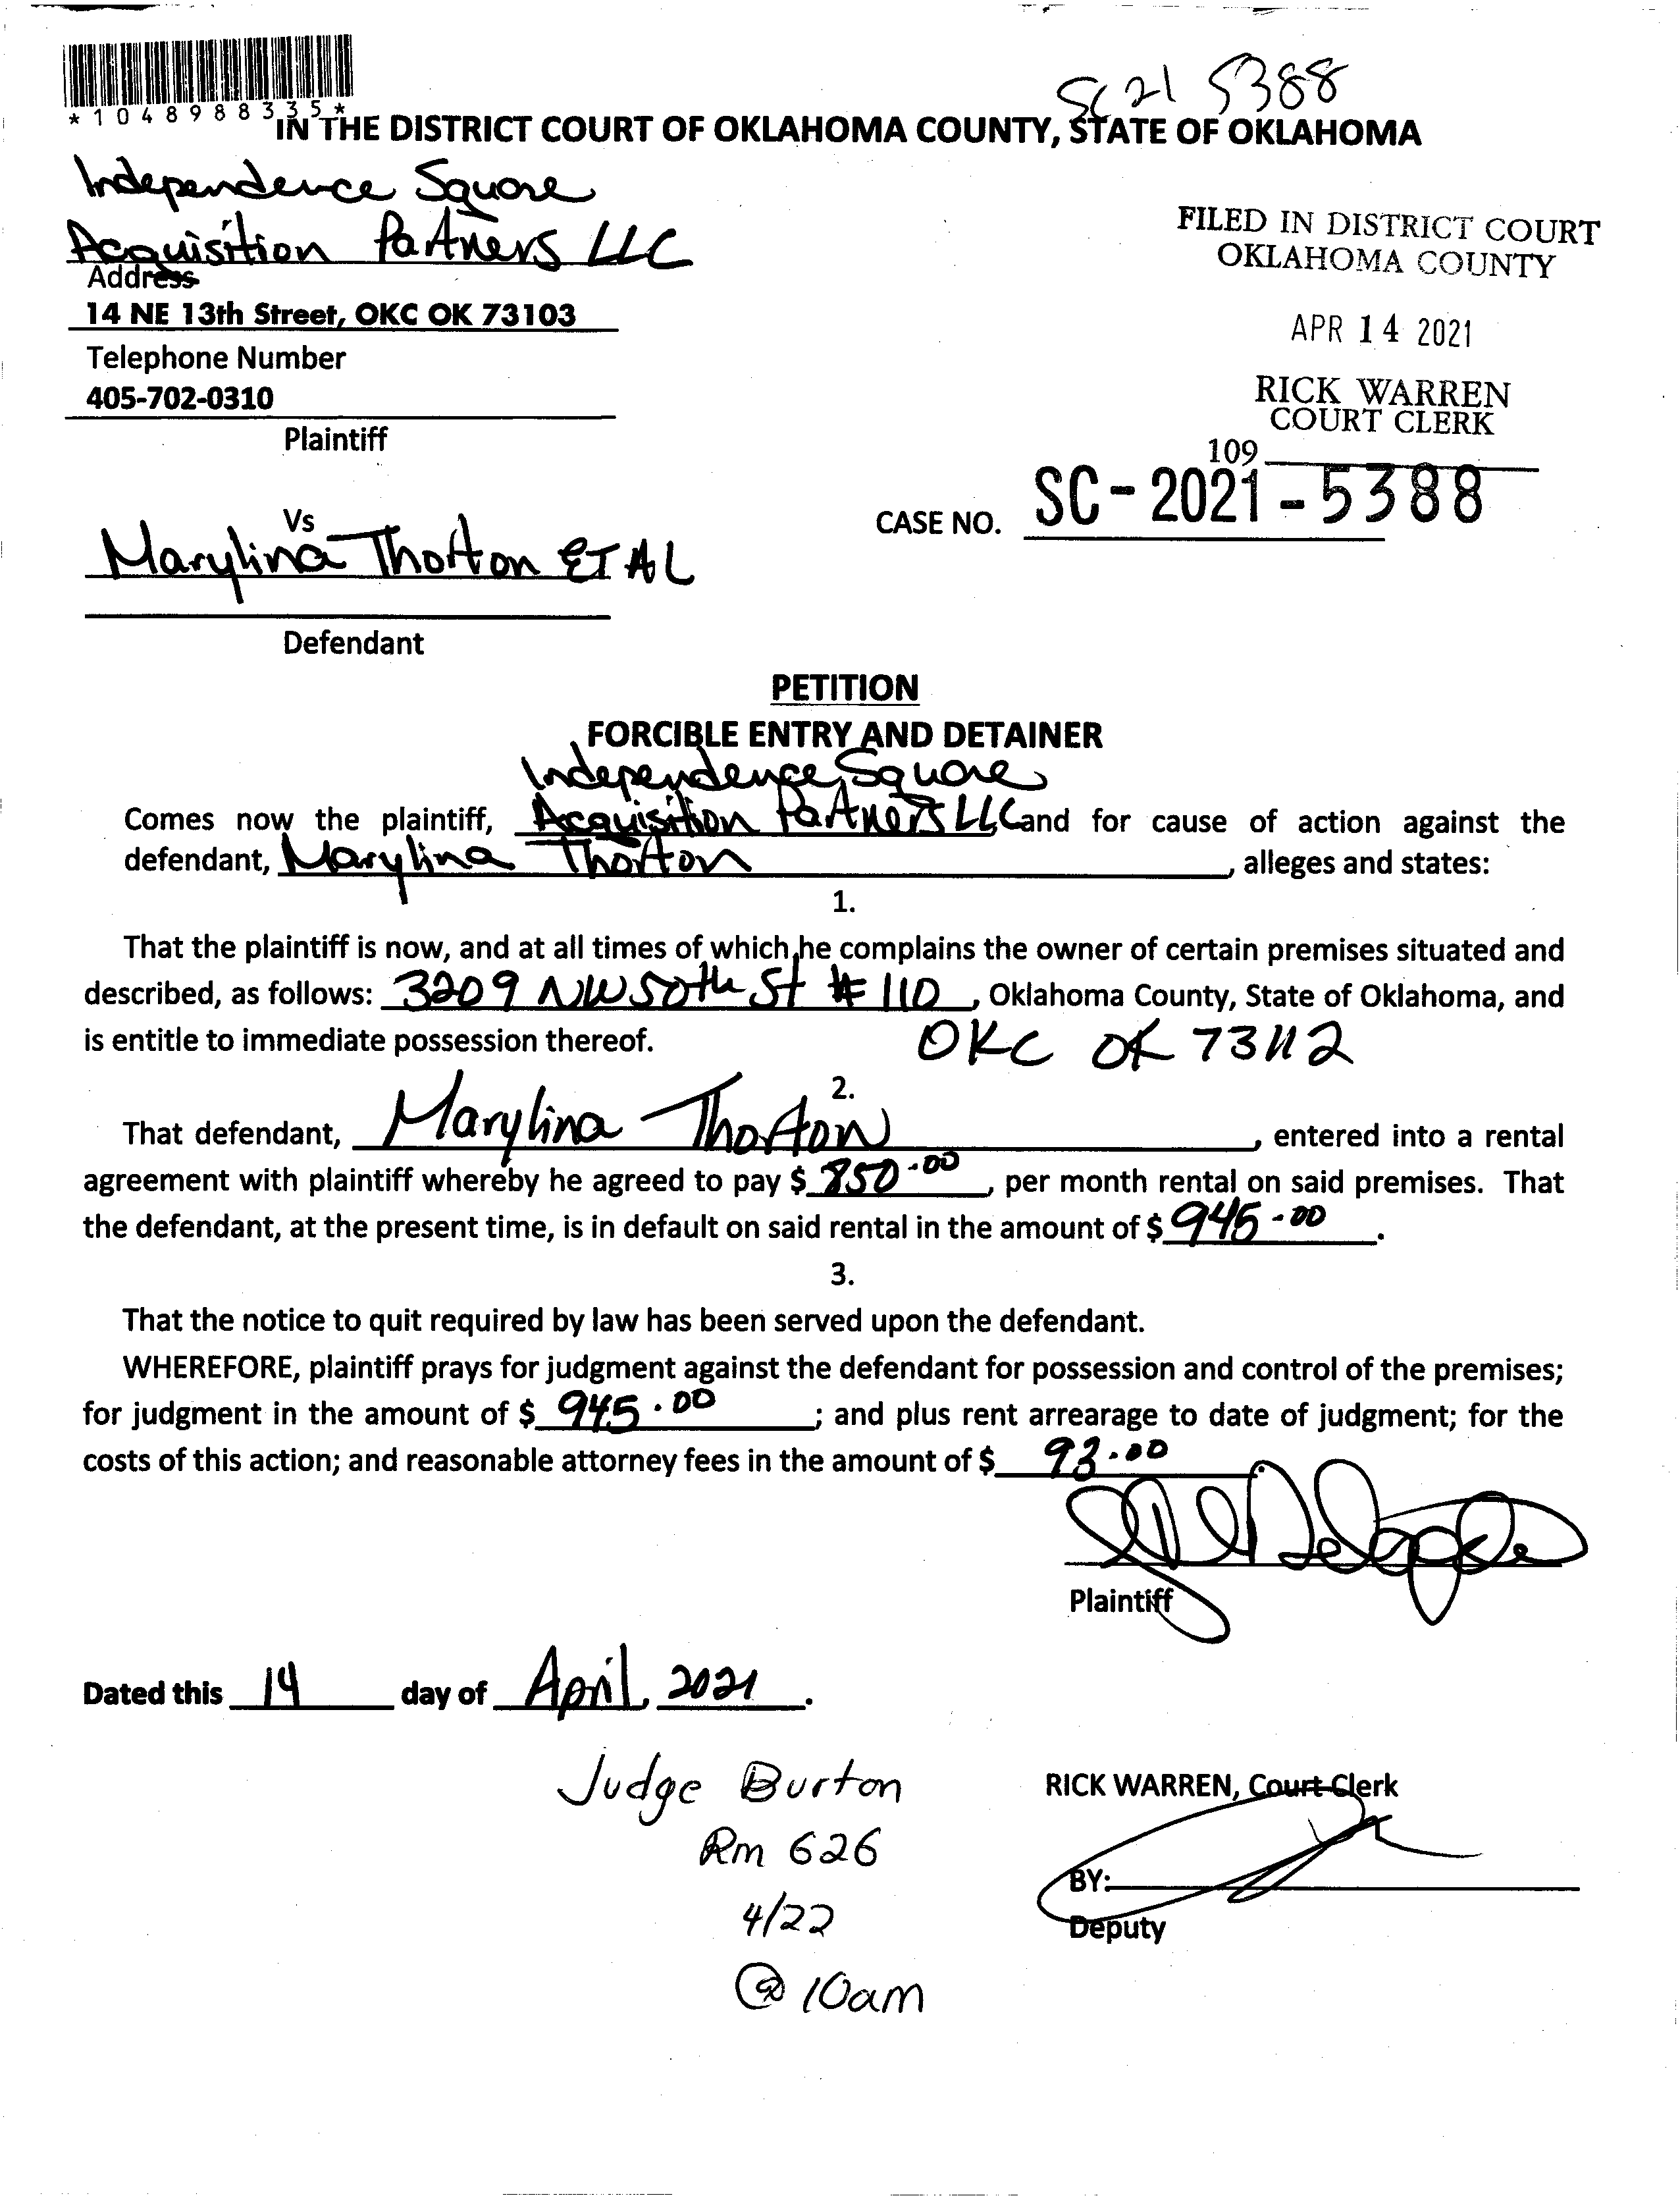 SC 21 5388
*1048988335*
IN THE DISTRICT COURT OF OKLAHOMA COUNTY, STATE OF OKLAHOMA
Independence Square
Acquisition Partners LLC
Address
14 NE 13th Street, OKC OK 73103
Telephone Number
405-702-0310
Plaintiff
FILED IN DISTRICT COURT
OKLAHOMA COUNTY
APR 14 2021
RICK WARREN
COURT CLERK
109
CASE NO. SC-2021-5388
Vs
Marylina Thorton ET AL
Defendant
PETITION
FORCIBLE ENTRY AND DETAINER
Independence Square
Comes now the plaintiff, Acquisition Partners LLC and for cause of action against the
defendant, Marylina Thorton, alleges and states:
1.
That the plaintiff is now, and at all times of which he complains the owner of certain premises situated and
described, as follows: 3209 NW 50th St # 110, Oklahoma County, State of Oklahoma, and
is entitle to immediate possession thereof. OKC OK 73112
2.
That defendant, Marylina Thorton, entered into a rental
agreement with plaintiff whereby he agreed to pay $ 850.00, per month rental on said premises. That
the defendant, at the present time, is in default on said rental in the amount of $ 945-00.
3.
That the notice to quit required by law has been served upon the defendant.
WHEREFORE, plaintiff prays for judgment against the defendant for possession and control of the premises;
for judgment in the amount of $ 945.00; and plus rent arrearage to date of judgment; for the
costs of this action; and reasonable attorney fees in the amount of $ 93.00.
Plaintiff
Dated this 14 day of April, 2021.
Judge Burton
Rm 626
4/22
@ 10am
RICK WARREN, Court Clerk
BY:
Deputy